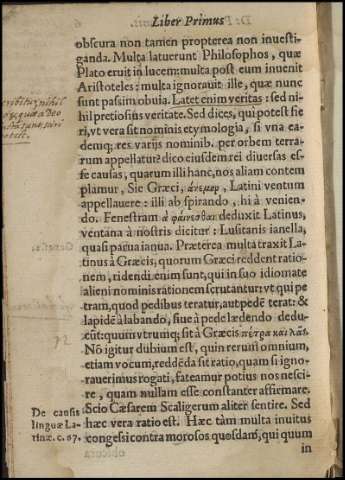 Liber Primus
obscura non tamen propterea non inuesti-
ganda. Multa latuerunt Philosophos, quæ
Plato eruit in lucem: multa post eum inuenit
Aristoteles: multa ignorauit ille, quæ nunc
sunt passim obuia. Latet enim veritas: sed ni-
hil pretiosius veritate. Sed dices, qui potest fie
ri, vt vera sit nominis etymologia, si vna ea-
demq; res varijs nominib. per orbem terra-
rum appellatur? dico eiusdem rei diuersas es-
se causas, quarum illi hanc, nos aliam contem
plamur, Sic Græci, ἄνεμον, Latini ventum
appellauere: illi ab spirando, hi à venien-
do. Fenestram à φαίνεσθαι deduxit Latinus,
ventana à nostris dicitur: Lusitanis ianella,
quasi parua ianua. Præterea multa traxit La-
tinus à Græcis, quorum Græci reddent ratio-
nem, ridendi enim sunt, qui in suo idiomate
alieni nominis rationem scrutantur: vt qui pe
tram, quod pedibus teratur, aut pedē terat: &
lapidē à labando, siue à pede lædendo dedu-
cūt: quum vtrumq; sit à Græcis πέτρα καὶ λᾶς.
Nō igitur dubium est, quin rerum omnium,
etiam vocum, reddēda sit ratio, quam si igno-
rauerimus rogati, fateamur potius nos nesci-
re, quam nullam esse constanter affirmare.
De causis
linguæ La-
tinæ. c. 67.
Scio Cæsarem Scaligerum aliter sentire. Sed
hæc vera ratio est. Hæc tàm multa inuitus
congessi contra morosos quosdam, qui quum
in